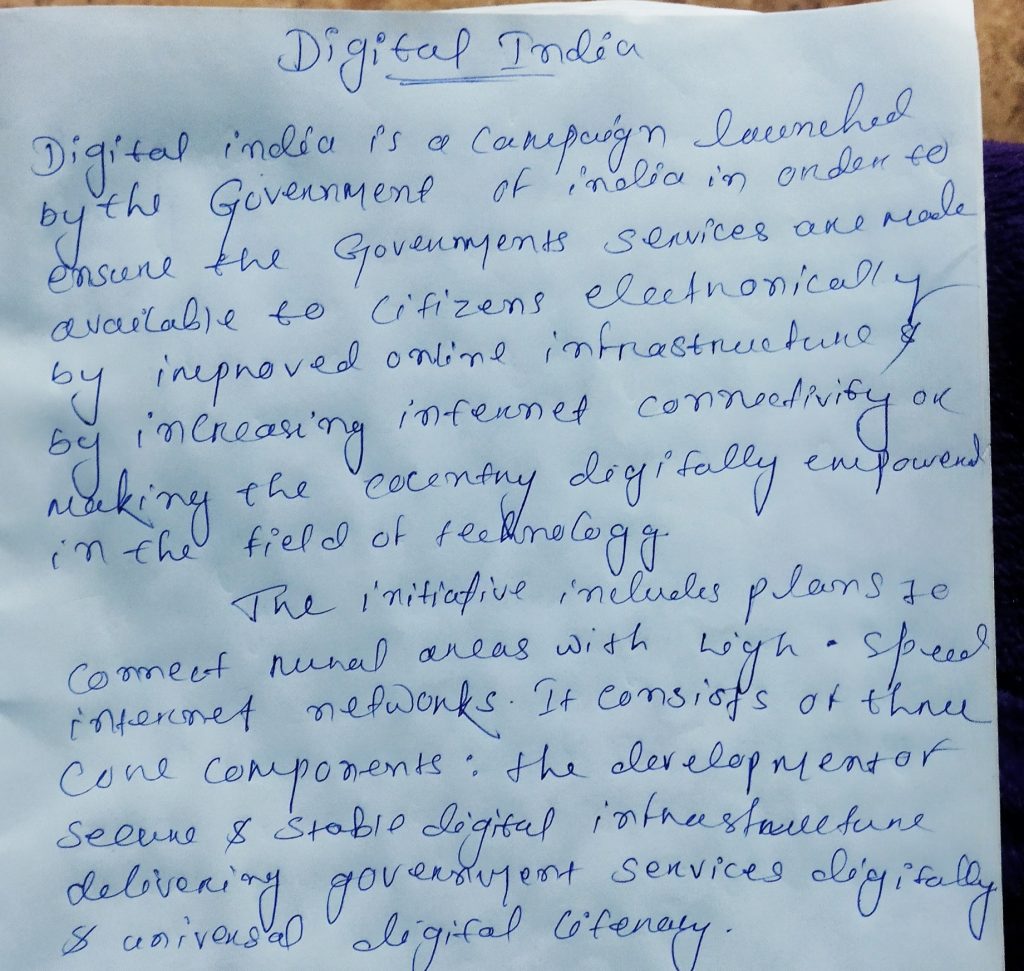 Digital India
Digital india is a Campaign launched
by the Government of india in order to
ensure the Governments services are made
available to Citizens electronically
by improved online infrastructure &
by increasing internet connectivity or
making the country digitally empowered
in the field of technology
The initiative includes plans to
Connect rural areas with high-speed
internet networks. It consists of three
Core Components: the development of
secure & stable digital infrastructure
delivering government services digitally
& universal digital literacy.